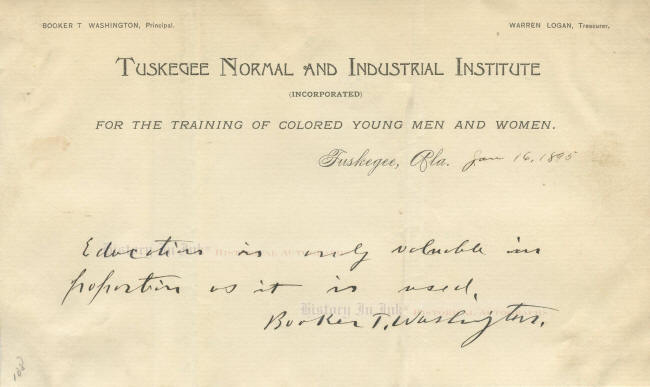 BOOKER T WASHINGTON, Principal.
WARREN LOGAN, Treasurer,
TUSKEGEE NORMAL AND INDUSTRIAL INSTITUTE
(INCORPORATED)
FOR THE TRAINING OF COLORED YOUNG MEN AND WOMEN.
Tuskegee, Ala. Jan 16, 1895
Education is only valuable in
History In Ink
proportion as it is used.
History In Ink
Booker T. Washington.